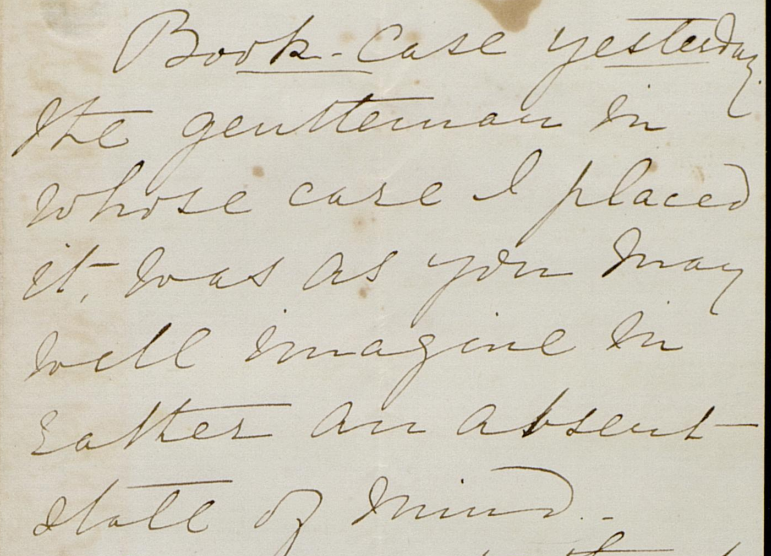 Book-Case yesterday
the gentleman in
whose care I placed
it, was as you may
well imagine in
rather an absent
state of mind.